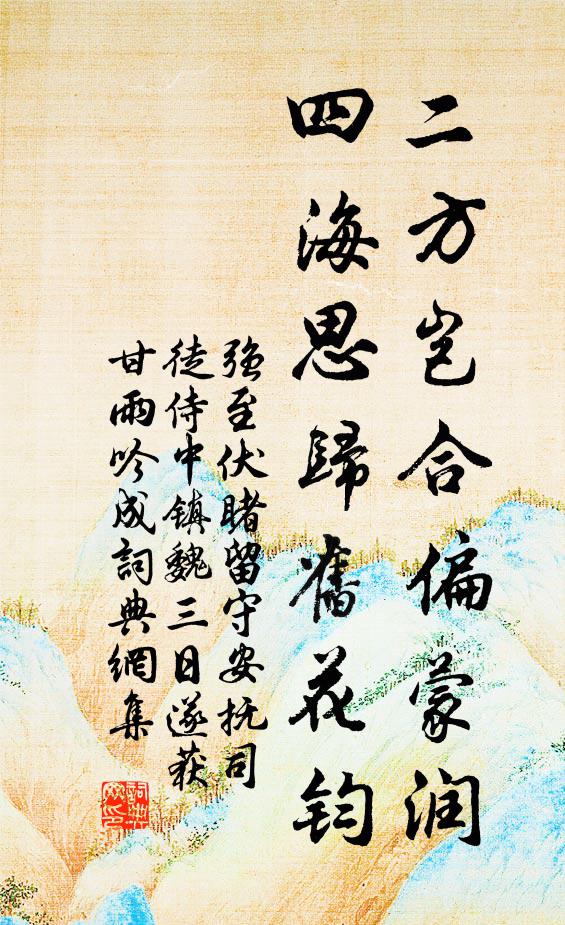 二方岂合偏蒙润
四海思歸舊花钧
强至伏睹留守安抚司
徒侍中镇魏三日遂获
甘雨吟成詞典網集